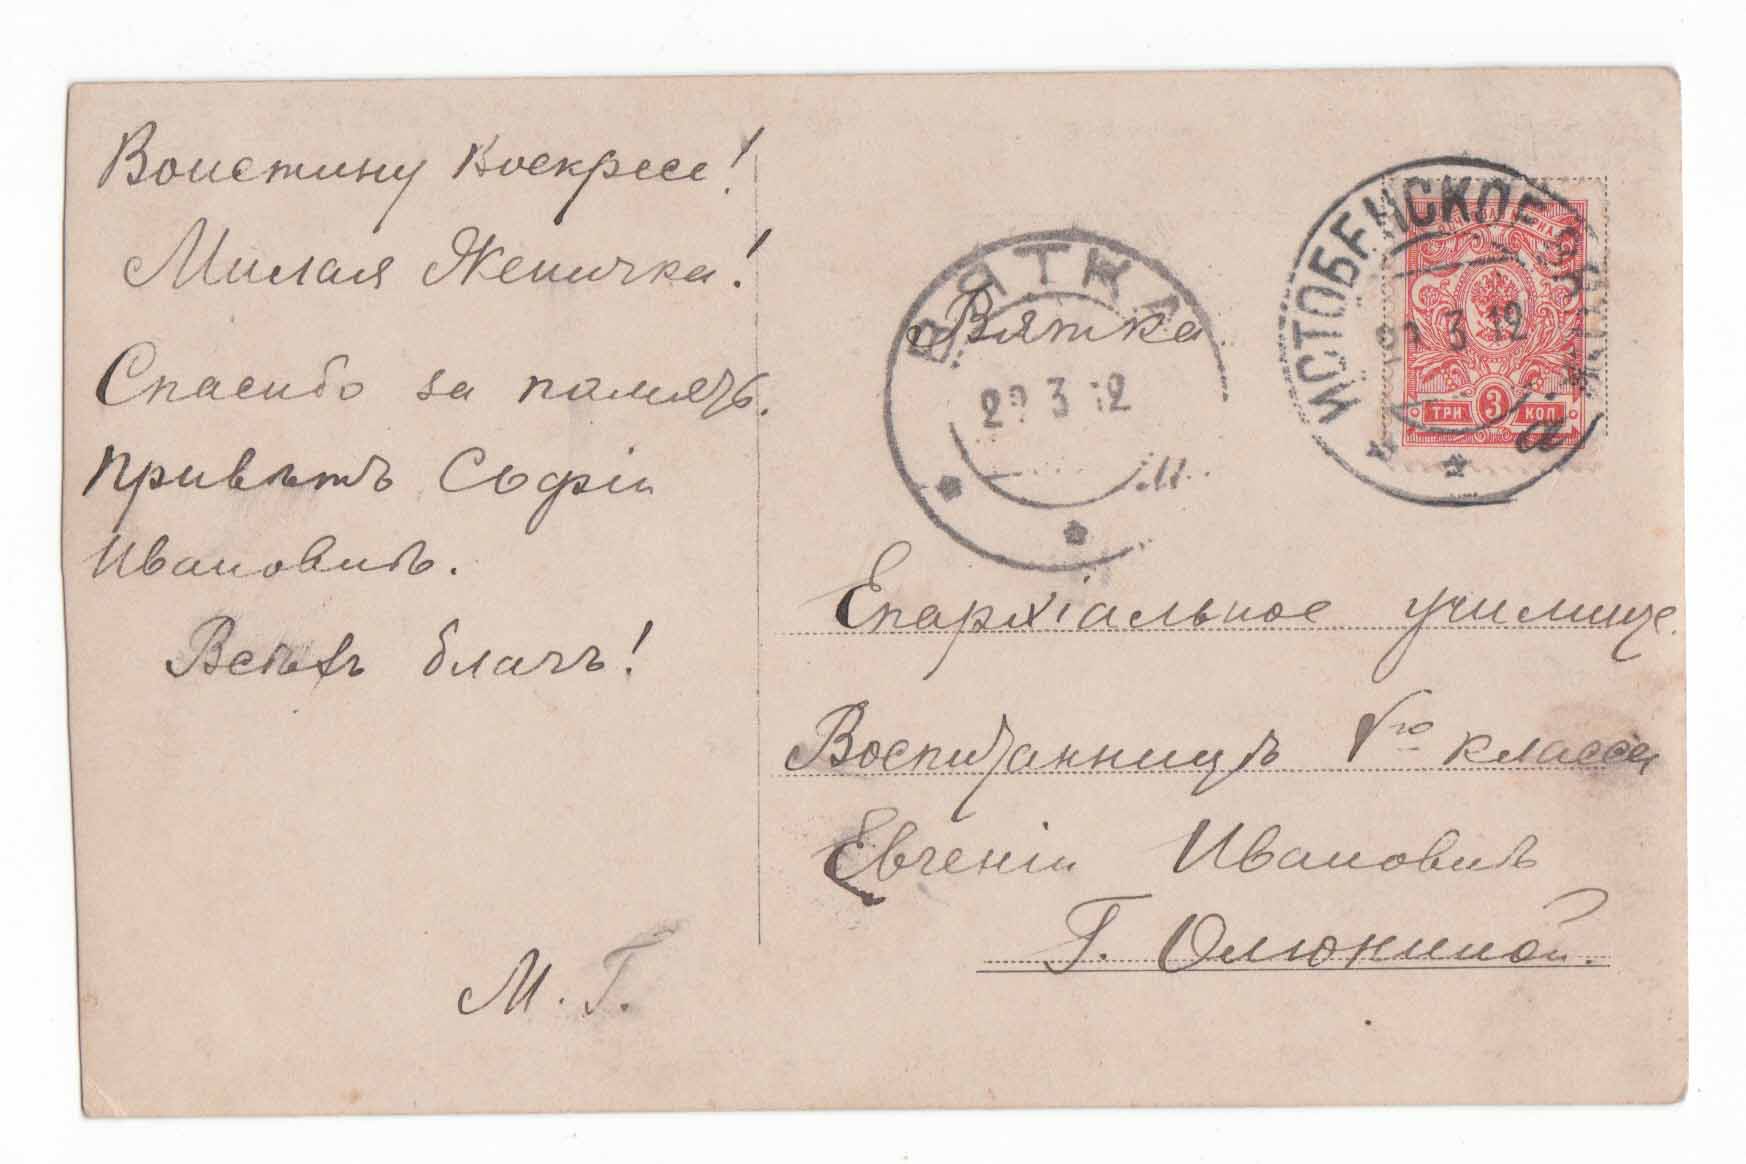 Воистину Воскресе!
Милая Женичка!
Спасибо за память.
Привѣтъ Софіи
Ивановнѣ.
Всѣхъ благъ!
М. Г.
ВЯТКА
29 3 12
ИСТОБЕНСКОЕ
3 12
а
ТРИ 3 КОП
Вятка
Епархіальное училище.
Воспитанницѣ V го класса
Евгеніи Ивановнѣ
Г. Олюниной.